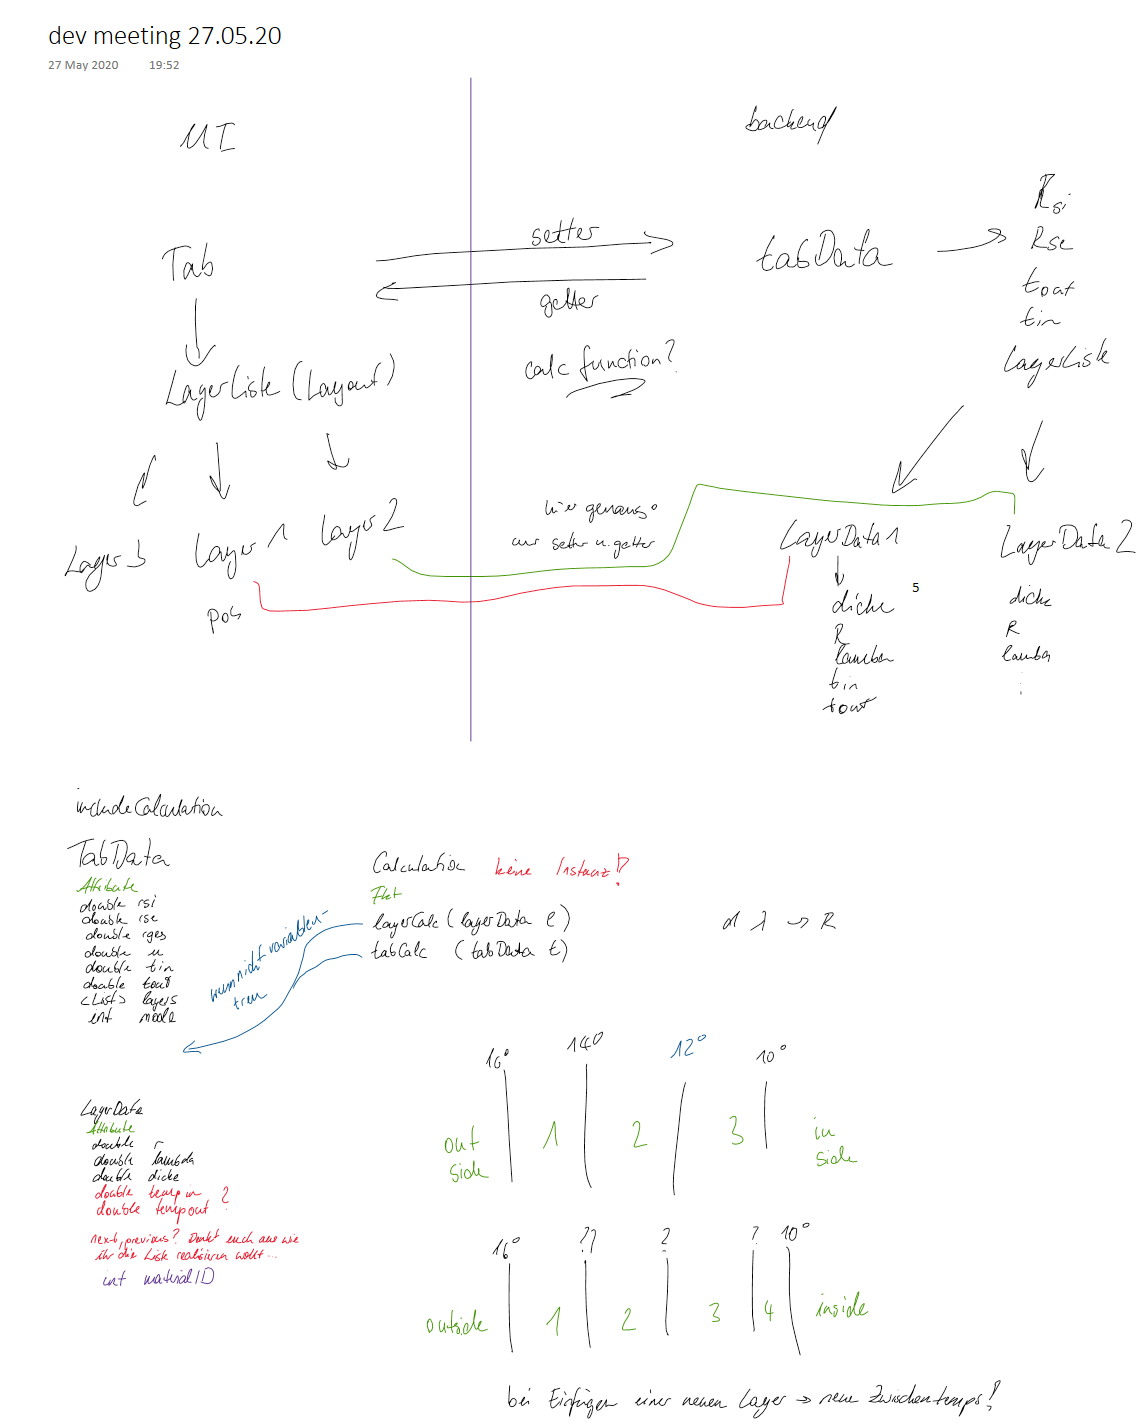 dev meeting 27.05.20
27 May 2020 19:52
UI
backend
Rsi
Rse
tout
tin
LayerListe
Tab
setter
getter
tabData
calc function?
LayerListe (Layout)
Layer 3
Layer 1
Layer 2
pos
hier genauso
nur setter u. getter
LayerData 1
LayerData 2
5
dicke
R
lambda
tin
tout
dicke
R
lambda
include Calculation
TabData
Attribute
double rsi
double rse
double rges
double u
double tin
double tout
<List> layers
int mode
Calculation keine Instanz!?
layerCalc (layerData l)
tabCalc (tabData t)
d λ -> R
LayerData
Attribute
double r
double lambda
double dicke
double tempin ?
double tempout
next, previous? Denkt euch aus wie
ihr die Liste realisieren wollt...
int materialID
16° 14° 12° 10°
out
side
1 2 3
in
side
16° ?? ? ? 10°
outside 1 2 3 4 inside
bei Einfügen einer neuen Layer -> neue Zwischentemps!